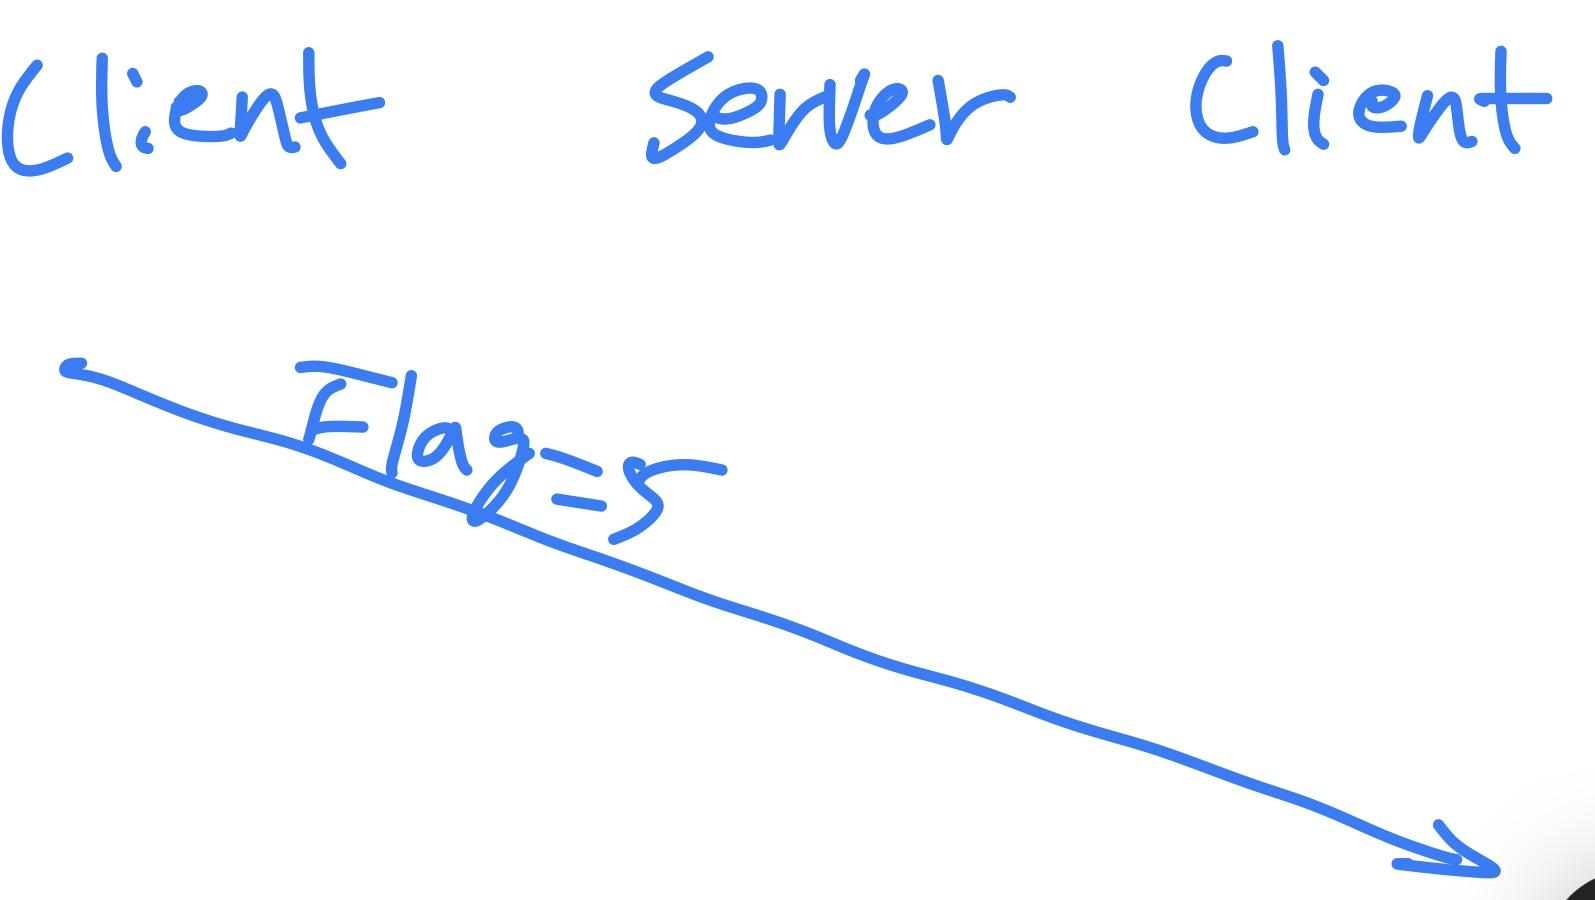 Client Server Client
Flag=5